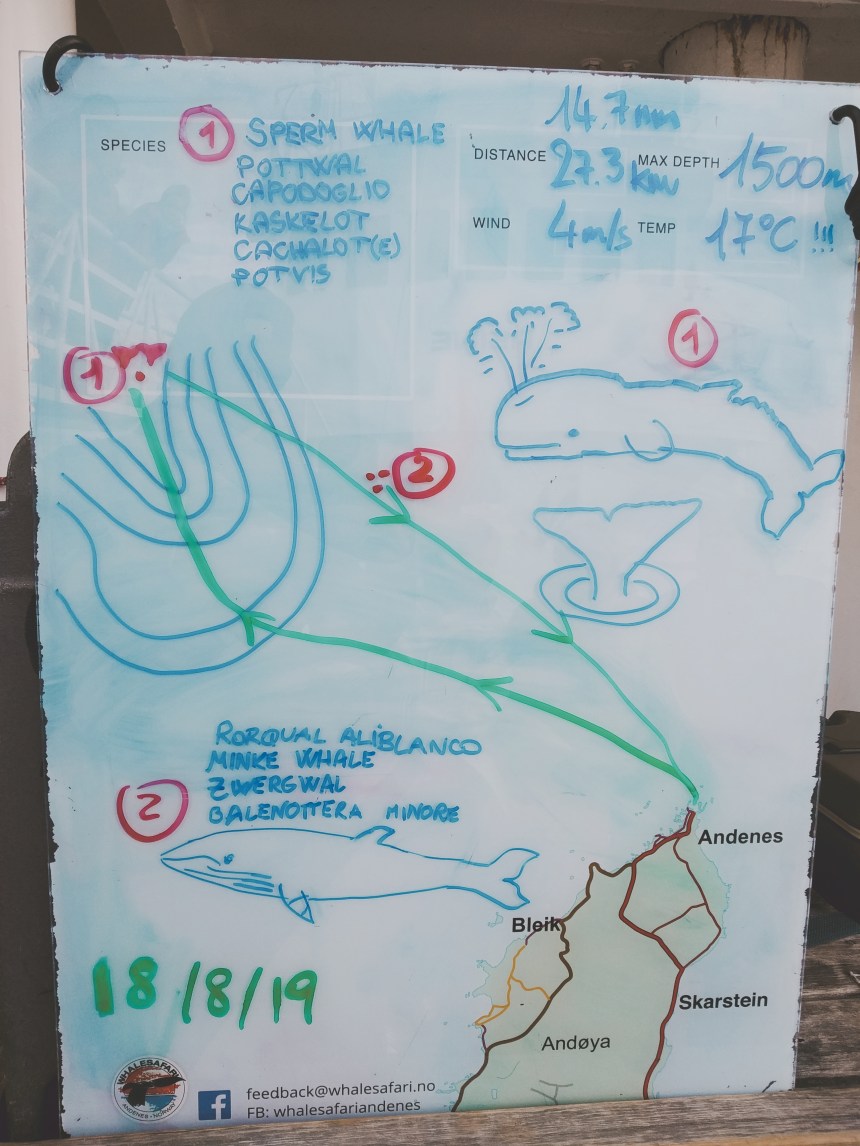 SPECIES
1
SPERM WHALE
POTTWAL
CAPODOGLIO
KASKELOT
CACHALOT(E)
POTVIS
14.7nm
DISTANCE 27.3 km
MAX DEPTH 1500m
WIND 4m/s
TEMP 17°C !!!
1
1
2
RORQUAL ALIBLANCO
MINKE WHALE
ZWERGWAL
BALENOTTERA MINORE
2
Andenes
Bleik
Skarstein
Andøya
18/8/19
WHALESAFARI
ANDENES - NORWAY
feedback@whalesafari.no
FB: whalesafariandenes